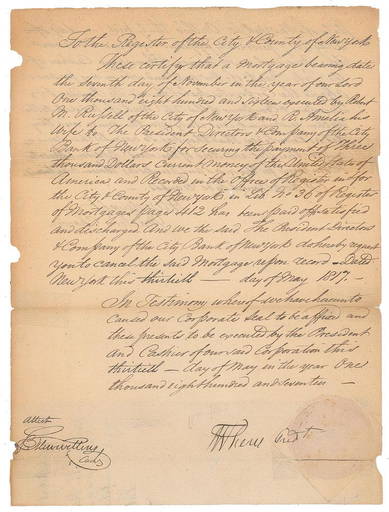 To the Register of the City & County of New York
These certify that a Mortgage bearing date
the Seventh day of November in the year of our Lord
One thousand eight hundred and Sixteen executed by Robt
M. Russell of the City of New York and R. Amelia his
Wife to The President Directors & Company of the City
Bank of New York for securing the payment of Three
thousand Dollars Current money of the United States of
America and Recorded in the Office of Register in & for
the City & County of New York in Lib No 36 of Register
of Mortgages page 412 has been paid off satisfied
and discharged And we the said The President Directors
& Company of the City Bank of New York do hereby request
you to cancel the said Mortgage upon record Dated
New York this thirtieth day of May 1817.
In Testimony whereof we have hereunto
caused our Corporate Seal to be affixed and
these presents to be executed by the President
and Cashier of our said Corporation this
thirtieth day of May in the year One
thousand eight hundred and seventeen
Attest
Cash
Presdt